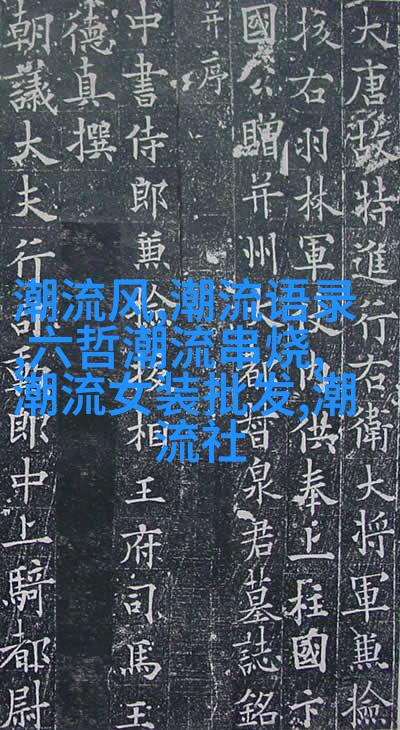 大唐故特進行右衛大將軍兼檢
校右羽林軍內供奉上柱國卞
國公贈并州大都督泉君墓誌銘
并序
中書侍郎兼檢校相王府司馬王
德真撰
朝議大夫行司勳郎中上騎都尉
潮流风,潮流语录
,六哲潮流串烧、
潮流女装批发,潮
流社